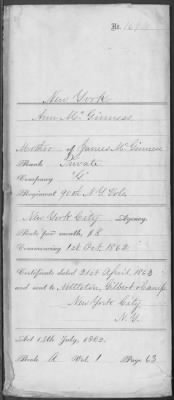 No.
New York
Ann McGinness
Mother of James McGinness
Rank Private
Company "G"
Regiment 90th N.Y. Vols
New York City Agency.
Rate per month, $8
Commencing 1st Oct 1862
Certificate dated 21st April 1863
and sent to Nettleton, Gilbert & Camp
New York City
N.Y.
Act 14th July, 1862.
Book A Vol. 1 Page 63